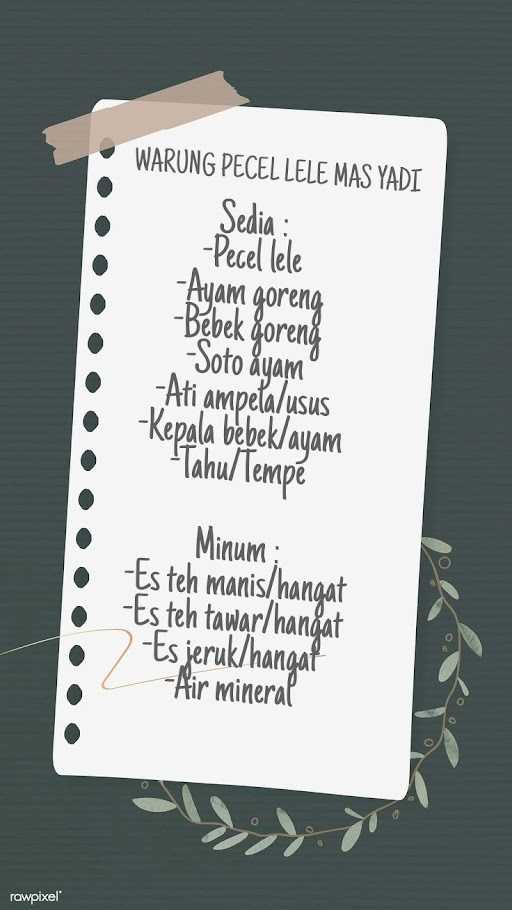 WARUNG PECEL LELE MAS YADI
Sedia :
-Pecel lele
-Ayam goreng
-Bebek goreng
-Soto ayam
-Ati ampela/usus
-Kepala bebek/ayam
-Tahu/Tempe
Minum :
-Es teh manis/hangat
-Es teh tawar/hangat
-Es jeruk/hangat
-Air mineral
rawpixel